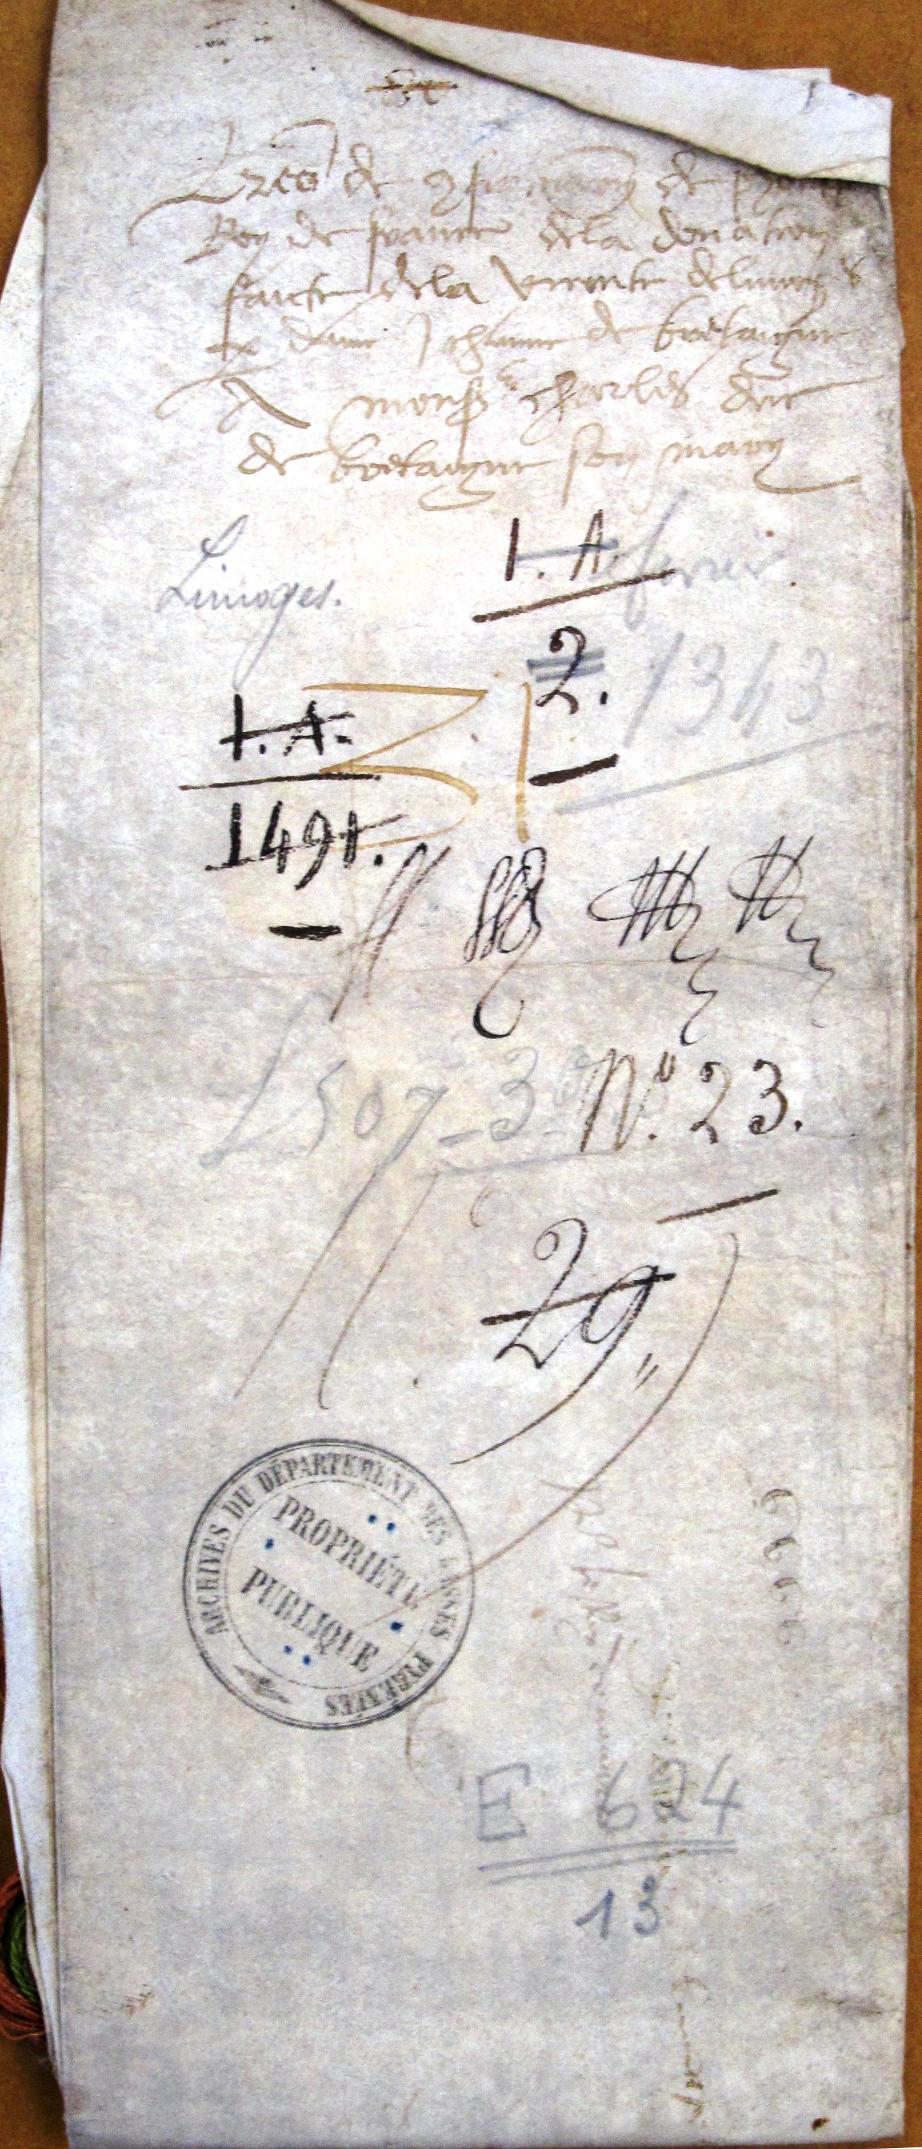 Lres de confirmacion de phelippe
Roy de france de la donation
faicte de la viconte de limoges
p dame Jehanne de bretaigne
A monsr charles duc
de bretaigne son mary
Limoges.
1. A. fevrier.
2. 1343
1. A.
1491.
31
L 507 - 3
No. 23.
29
ARCHIVES DU DÉPARTEMENT DES BASSES PYRÉNÉES
PROPRIÉTÉ
PUBLIQUE
E 624
13